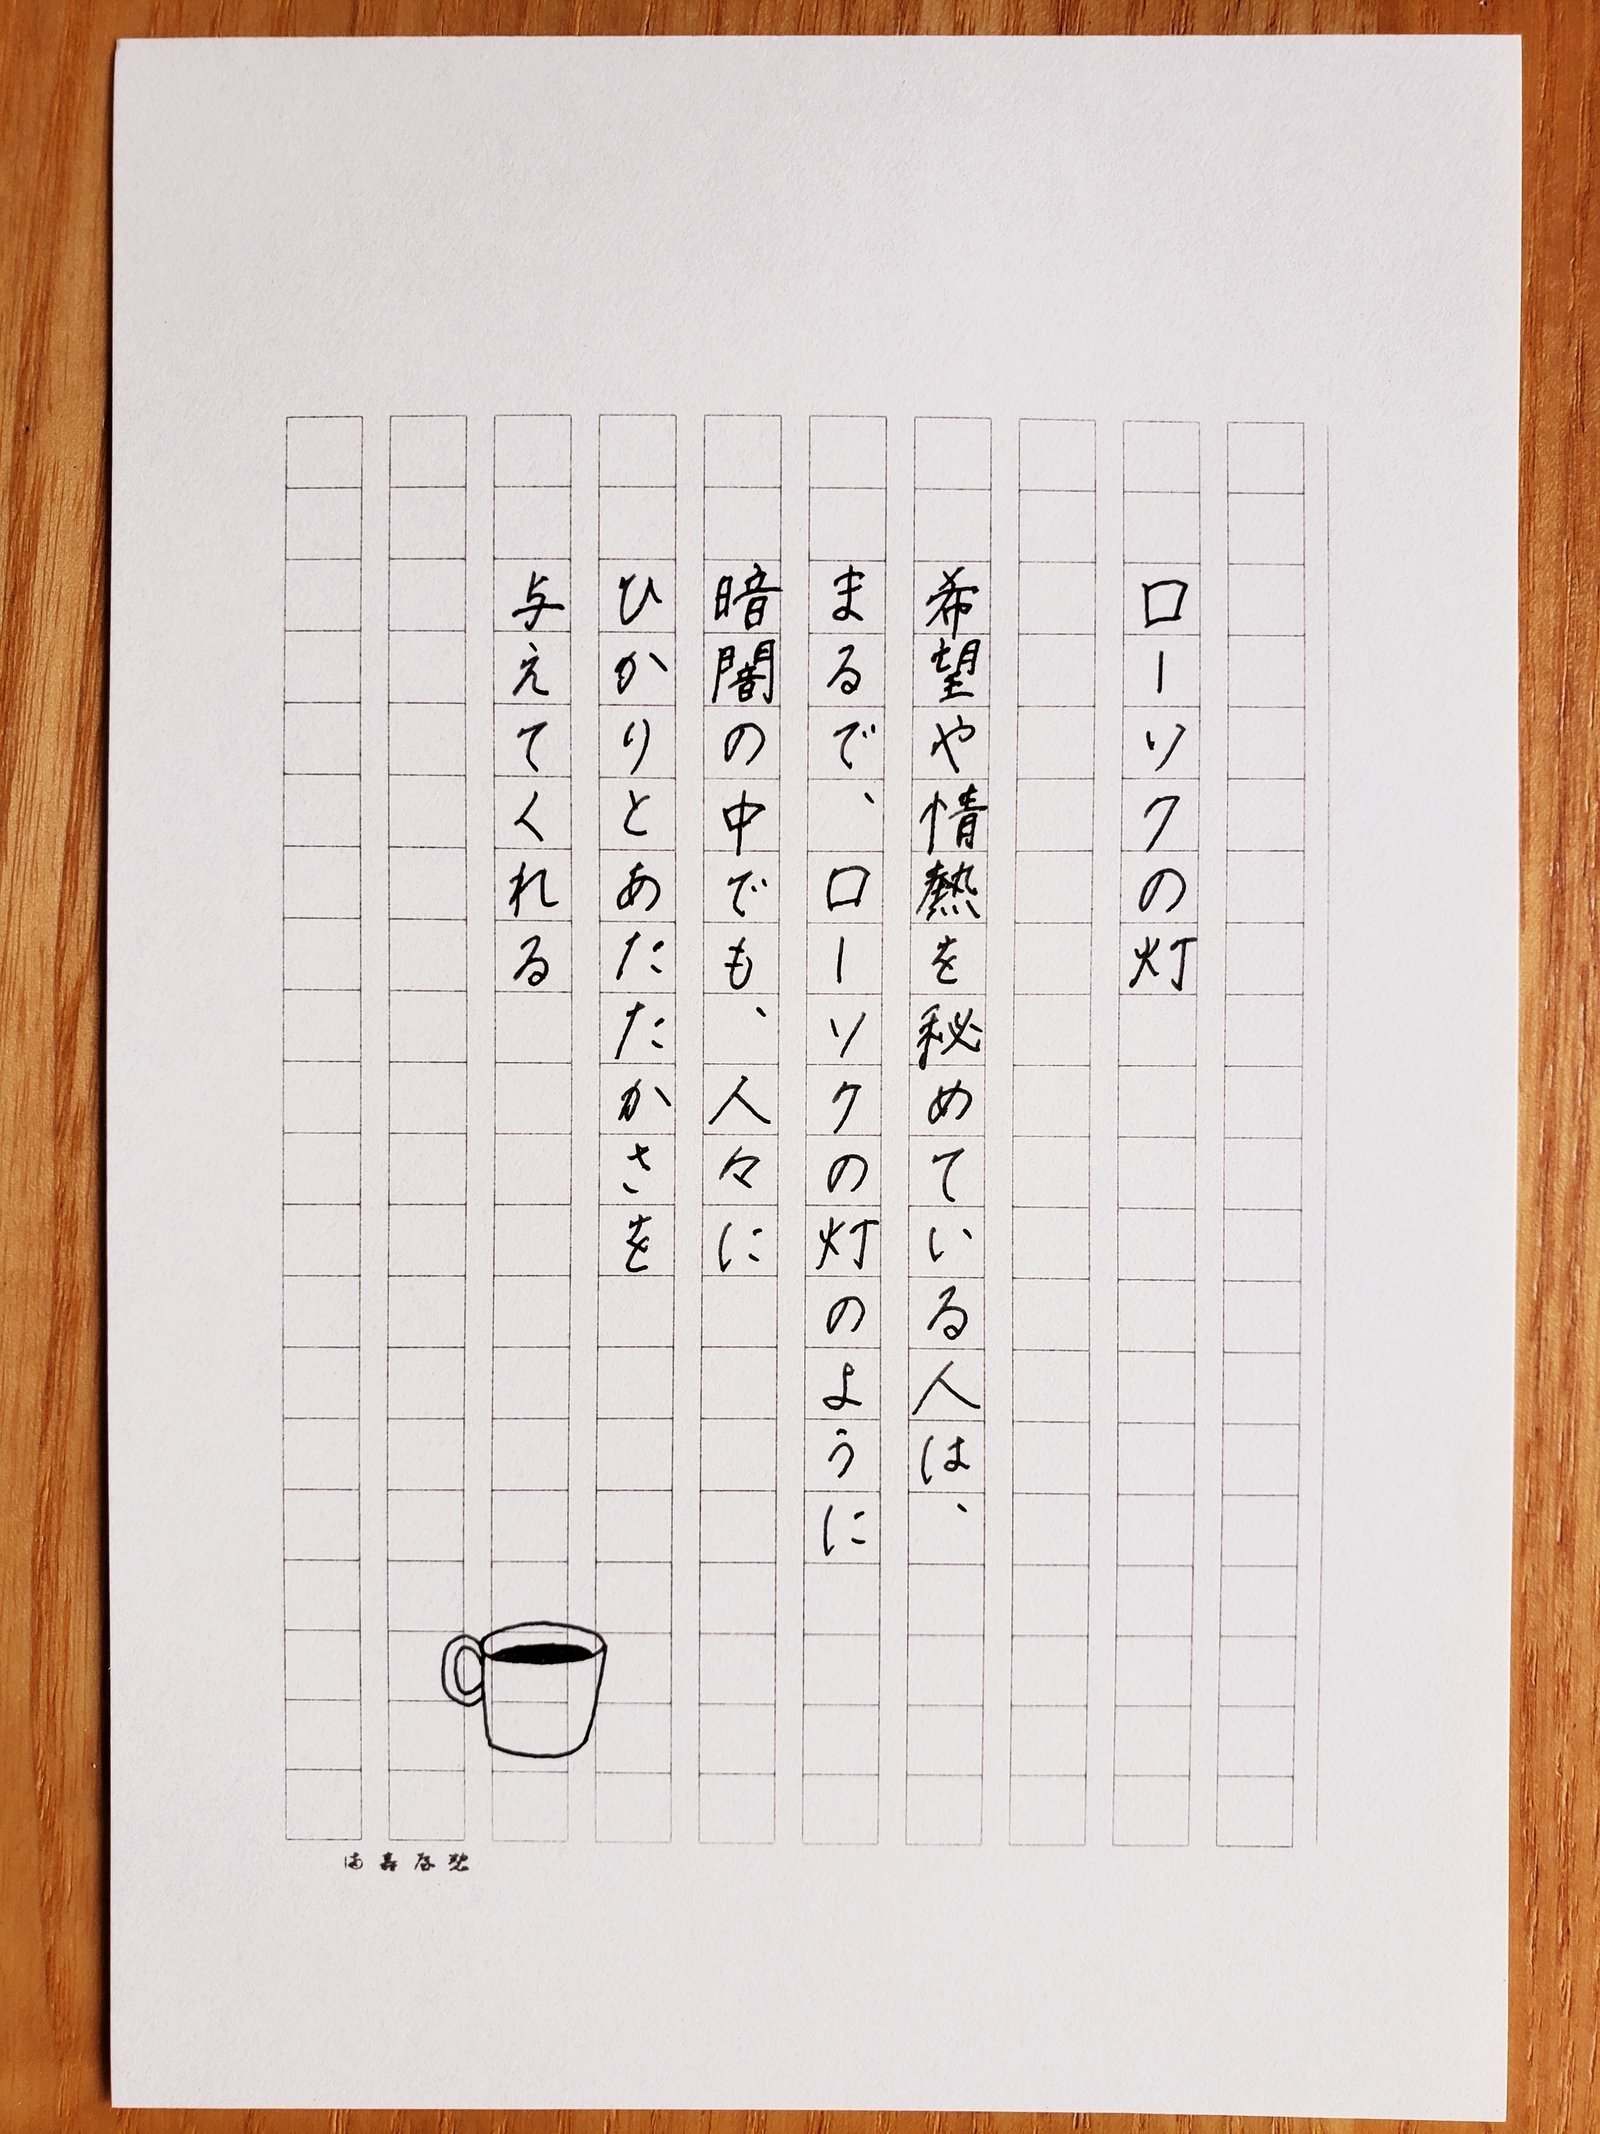 ローソクの灯
希望や情熱を秘めている人は、
まるで、ローソクの灯のように
暗闇の中でも、人々に
ひかりとあたたかさを
与えてくれる